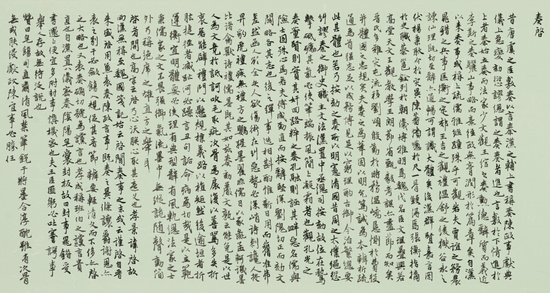 奏啓
昔唐虞之臣敷奏以言秦漢之輔上書稱奏陳政事獻典
儀上急變劾愆謬總謂之奏奏者進也言敷于下情進於
上者秦始立奏而法家少文觀王綰之奏勳德辭質而義近
李斯之奏驪山事略而意誣政無膏潤形於篇章矣自漢
以來奏事或稱上疏儒雅繼踵殊采可觀若夫賈誼之務農
晁錯之兵事匡衡之定郊王吉之觀禮溫舒之緩獄谷永之
諫仙理既切至辭亦通暢可謂識大體矣後漢群賢嘉言罔
伏楊秉耿介於災異陳蕃憤懣於尺一骨鯁得焉張衡指摘
於史職蔡邕銓列於朝儀博雅明焉魏代名臣文理迭興若
高堂天文王觀教學王朗節省甄毅考課亦盡節而知
治矣晉氏多難災屯流移劉頌殷勤於時務溫嶠懇惻於費役
並體國之忠規矣夫奏之為筆固以明允篤誠為本辨析疏
通為首強志足以成務博見足以窮理酌古御今治繁總要
此其體也若乃按劾之奏所以明憲清國昔周之太僕繩愆
糾謬秦之御史職主文法漢置中丞總司按劾故位在鷙
擊砥礪其氣必使筆端振風簡上凝霜者也觀孔光之
奏董賢則實其姦回路粹之奏孔融則誣其釁惡名儒與
險士固殊心焉若夫傅咸勁直而按辭堅深劉隗切正而劾文
闊略各其志也後之彈事迭相斟酌惟新日用而舊準弗
差然函人欲全矢人欲傷術在糾惡勢必深峭詩刺讒人投
畀豺虎禮疾無禮方之鸚猩墨翟非儒目以羊彘孟軻譏墨
比諸禽獸詩禮儒墨既其如茲奏劾嚴文孰云能免是以世
人為文競於詆訶吹毛取瑕次骨為戾復似善罵多失折
衷若能闢禮門以懸規標義路以植矩然後逾垣者折
肱捷徑者滅趾何必躁言醜句詬病為切哉是以立範
運衡宜明體要必使理有典刑辭有風軌總法家之式
秉儒家之文不畏強禦氣流墨中無縱詭隨聲動簡
外乃稱絕席之雄直方之舉耳
啓者開也高宗云啓乃心沃朕心取其義也孝景諱啓故
兩漢無稱至魏國箋記始云啓聞奏事之末或云謹啓自晉
來盛啓用兼表奏陳政言事既奏之異條讓爵謝恩亦
表之別幹必斂飭入規促其音節辨要輕清文而不侈亦啓
之大略也又表奏確切號為讜言讜者偏也孝成稱班伯之讜言貴
直也自漢置八儀密奏陰陽皂囊封板故曰封事晁錯受
書還上便宜後代便宜多附封事慎機密也夫王臣匪躬必吐謇諤事
舉人存故無待泛說也
贊曰皂飾司直肅清風禁筆銳干將墨含淳酖雖有次骨
無或膚浸獻政陳宜事必勝任